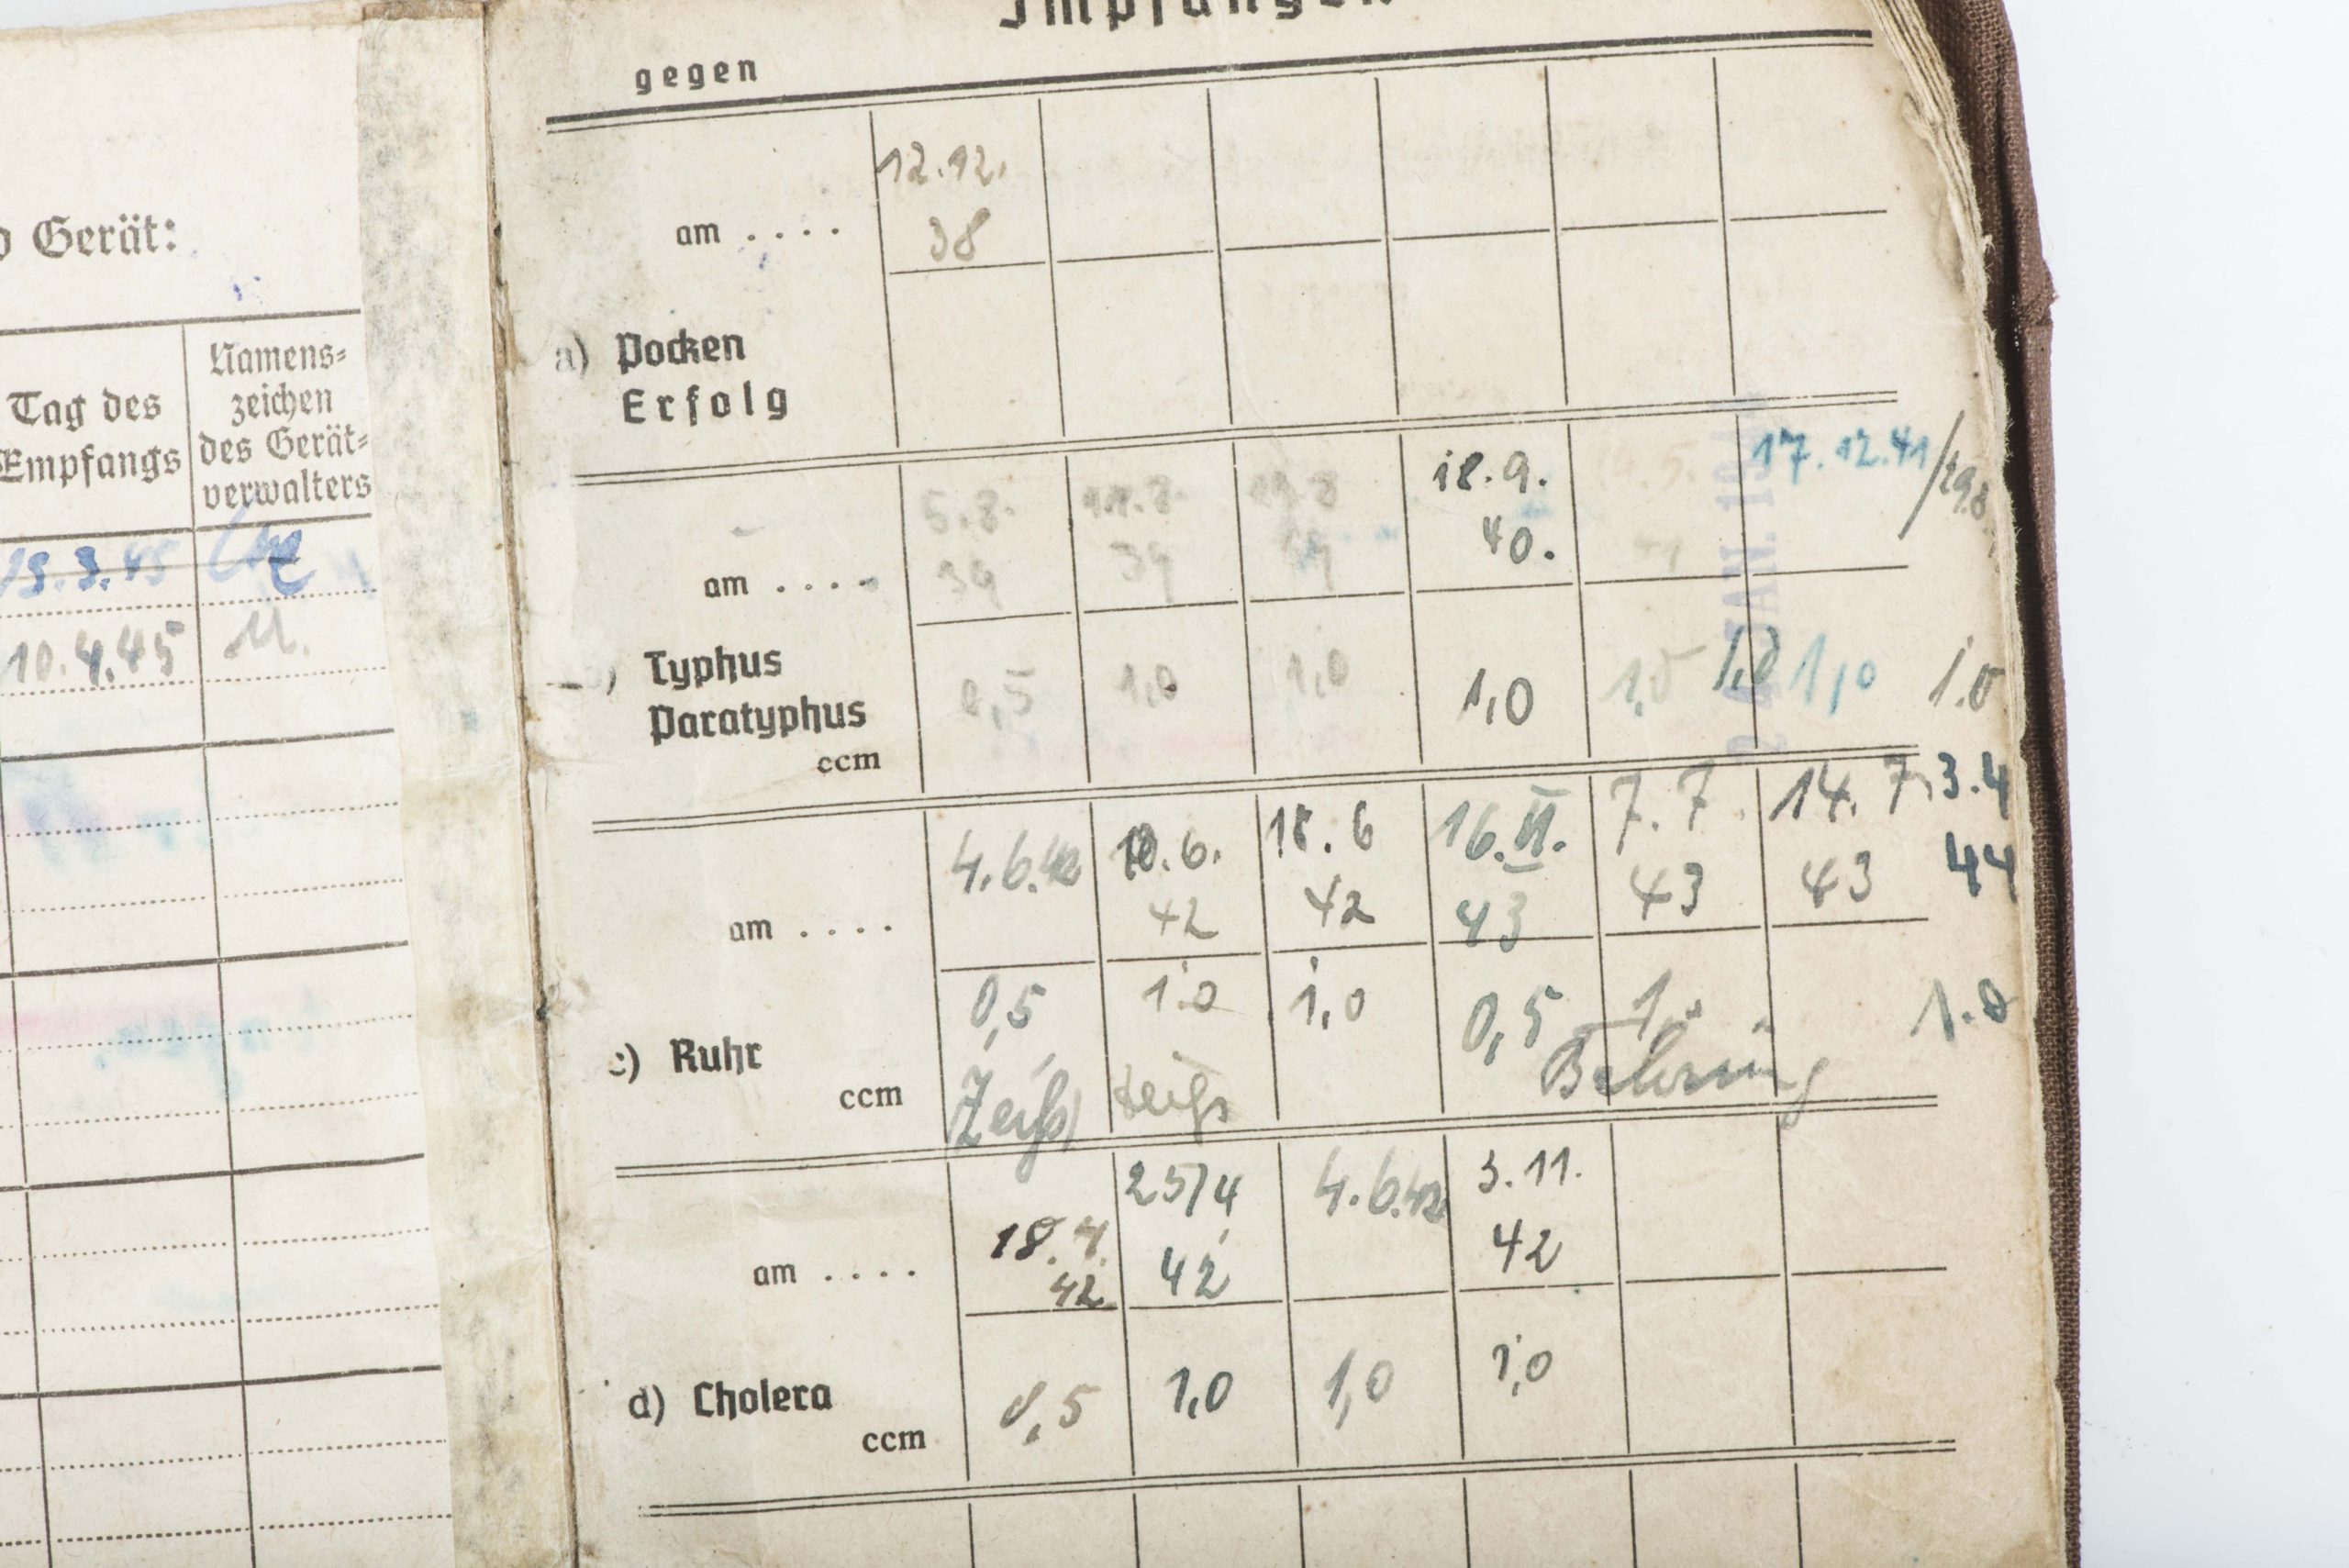 Gerät:
Tag des
Empfangs
Namens=
zeichen
des Gerät=
verwalters
19.3.45
10.4.45 M.
Impfungen
gegen
am . . . . 12.12. 38
a) Pocken
Erfolg
am . . . . 5.8. 39 39 39 18.9. 40. 41 17.12.41
Typhus
Paratyphus
ccm 0,5 1,0 1,0 1,0 1,0 1,0 1,0 1.0
am . . . . 4.6.42 10.6. 42 18.6 42 16.II. 43 7.7. 43 14.7. 43 3.4 44
c) Ruhr 0,5 1.0 1,0 0,5 1.0
ccm Behring
am . . . . 18.4. 42. 25/4 42 4.6.42 3.11. 42
d) Cholera
ccm 0,5 1,0 1,0 1,0